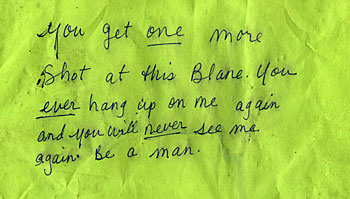 You get one more
Shot at this Blane. You
ever hang up on me again
and you will never see me
again. Be a man.